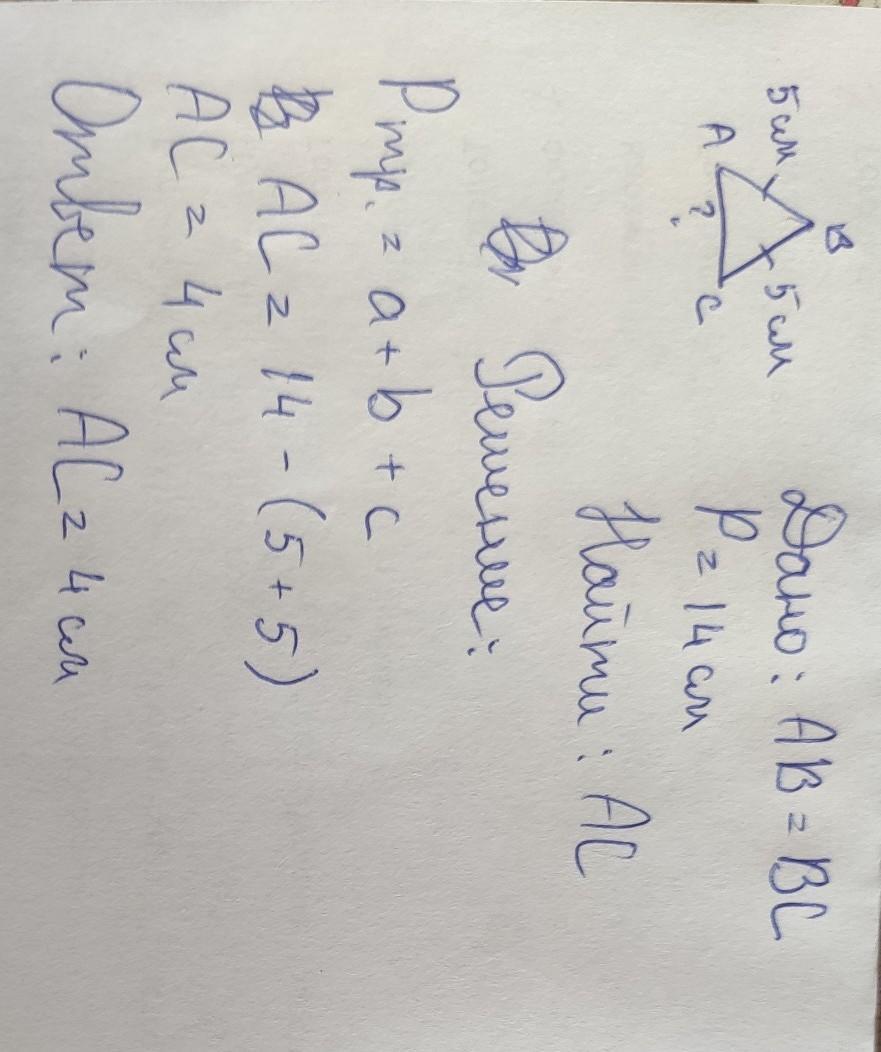 B
5 см 5 см
A ? C
Дано: AB = BC
P = 14 см
Найти: AC
Решение:
Pтр. = a + b + c
AC = 14 - (5 + 5)
AC = 4 см
Ответ: AC = 4 см